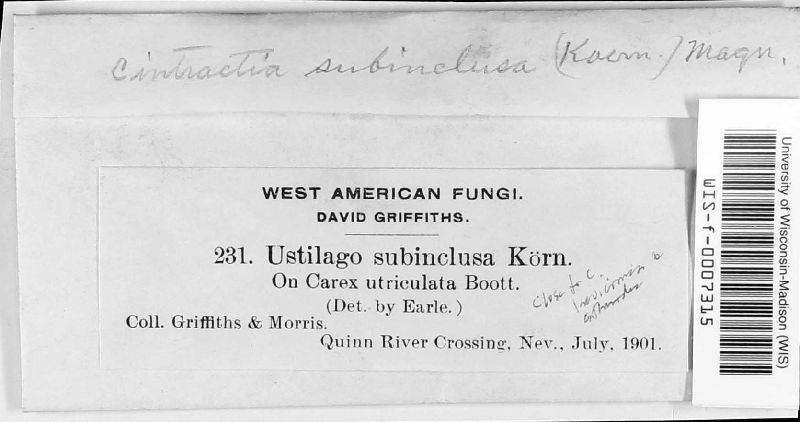 Cintractia subinclusa (Koern.) Magn.
WEST AMERICAN FUNGI.
DAVID GRIFFITHS.
231. Ustilago subinclusa Körn.
On Carex utriculata Boott.
(Det. by Earle.)
Close to C.
Coll. Griffiths & Morris.
Quinn River Crossing, Nev., July, 1901.
University of Wisconsin-Madison (WIS)
WIS-f-0007315